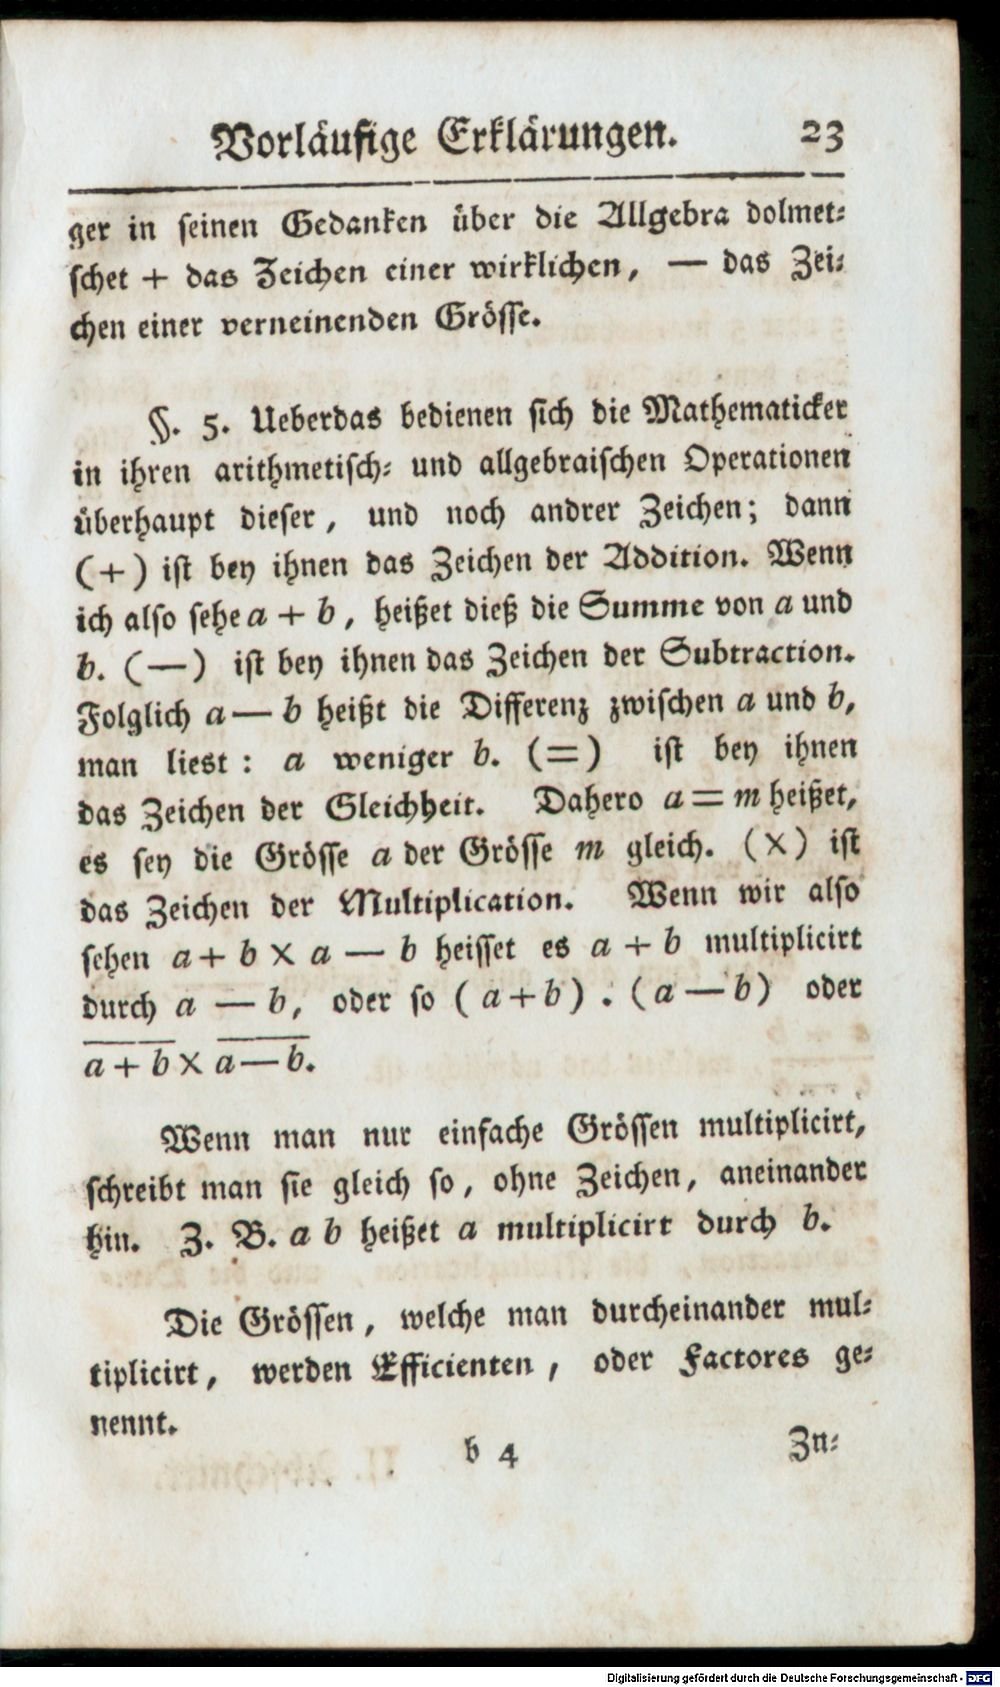 Vorläufige Erklärungen. 23
ger in seinen Gedanken über die Allgebra dolmet-
schet + das Zeichen einer wirklichen, — das Zei-
chen einer verneinenden Grösse.
§. 5. Ueberdas bedienen sich die Mathematicker
in ihren arithmetisch- und allgebraischen Operationen
überhaupt dieser, und noch andrer Zeichen; dann
(+) ist bey ihnen das Zeichen der Addition. Wenn
ich also sehe a + b, heißet dieß die Summe von a und
b. (—) ist bey ihnen das Zeichen der Subtraction.
Folglich a — b heißt die Differenz zwischen a und b,
man liest: a weniger b. (=) ist bey ihnen
das Zeichen der Gleichheit. Dahero a = m heißet,
es sey die Grösse a der Grösse m gleich. (×) ist
das Zeichen der Multiplication. Wenn wir also
sehen a + b × a — b heisset es a + b multiplicirt
durch a — b, oder so (a+b) . (a — b) oder
a̅ ̅+̅ ̅b̅ × a̅ ̅—̅ ̅b̅.
Wenn man nur einfache Grössen multiplicirt,
schreibt man sie gleich so, ohne Zeichen, aneinander
hin. Z. B. a b heißet a multiplicirt durch b.
Die Grössen, welche man durcheinander mul-
tiplicirt, werden Efficienten, oder Factores ge-
nennt.
b 4 Zu-
Digitalisierung gefördert durch die Deutsche Forschungsgemeinschaft - DFG